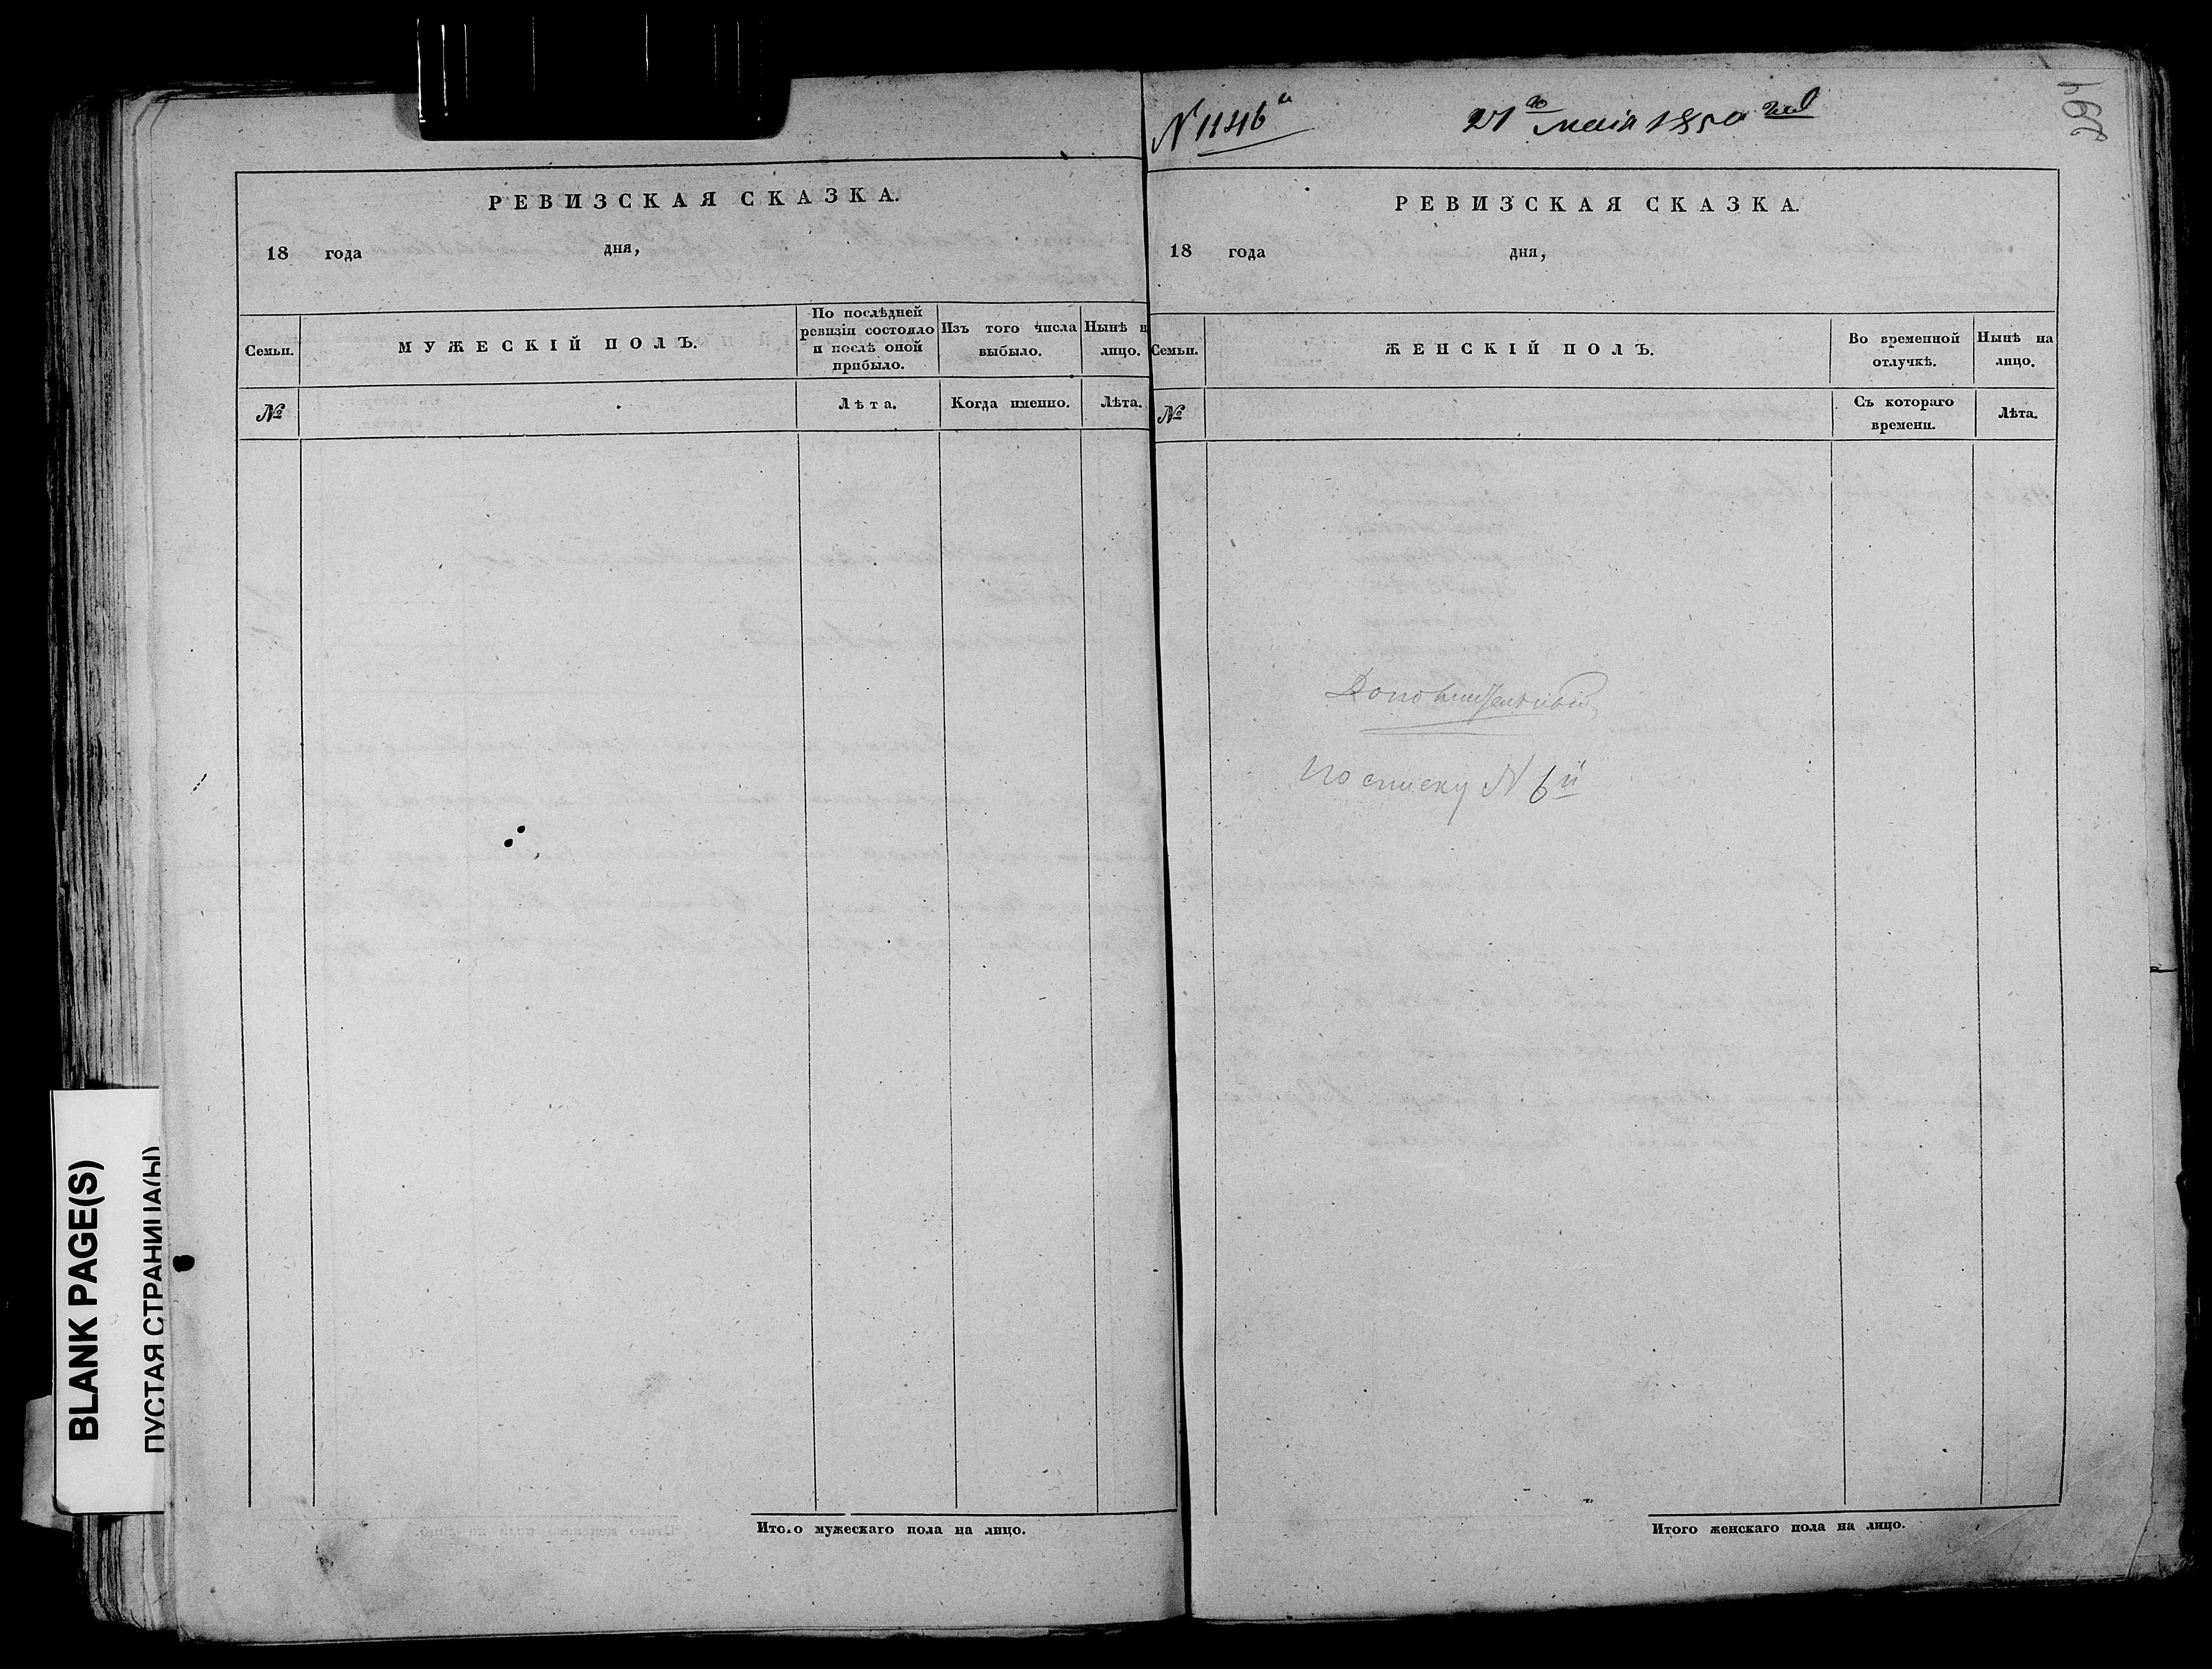 BLANK PAGE(S)
ПУСТАЯ СТРАНИЦА(Ы)
РЕВИЗСКАЯ СКАЗКА.
18 года дня,
Семьи.
МУЖЕСКІЙ ПОЛЪ.
По послѣдней ревизіи состояло и послѣ оной прибыло.
Изъ того числа выбыло.
Нынѣ н лицо.
№
Лѣта.
Когда именно.
Лѣта.
Итого мужескаго пола на лицо.
N 1146й
21го маія 1850 год
РЕВИЗСКАЯ СКАЗКА.
18 года дня,
Семьи.
ЖЕНСКІЙ ПОЛЪ.
Во временной отлучкѣ.
Нынѣ на лицо.
№
Съ котораго времени.
Лѣта.
Дополнительный
по списку N 6й
Итого женскаго пола на лицо.